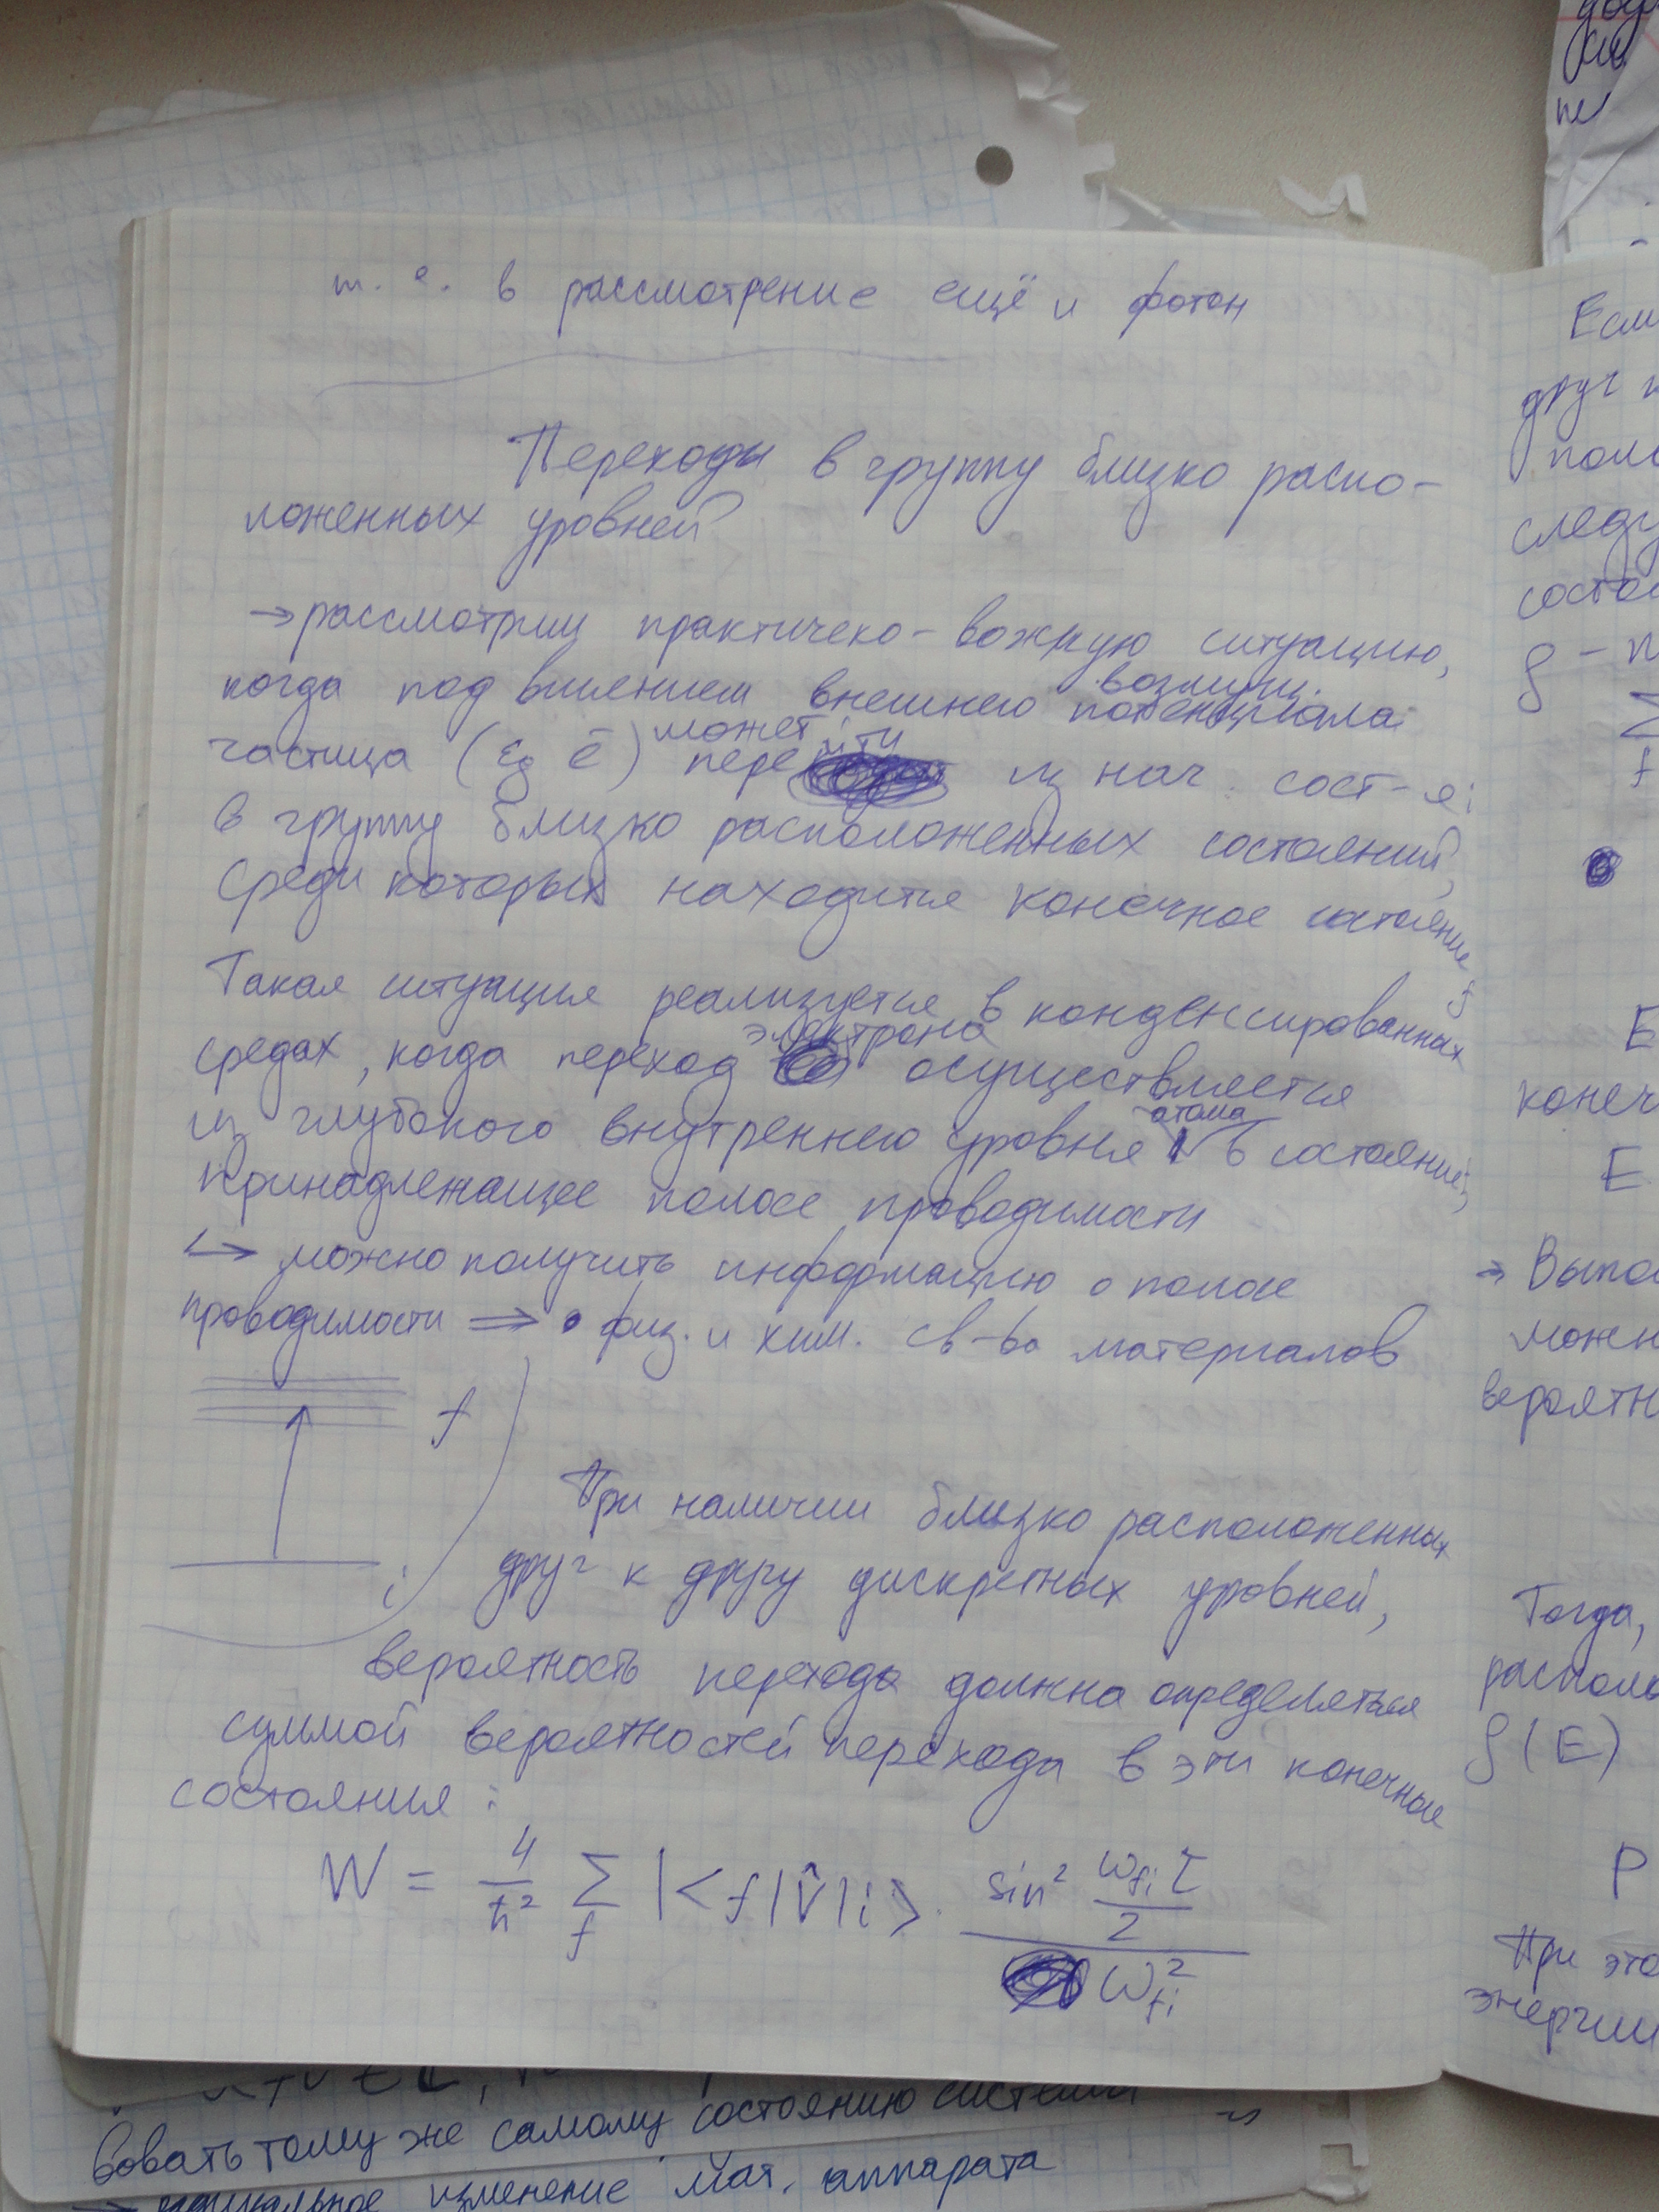 т. е. в рассмотрение ещё и фотон
Переходы в группу близко распо-
ложенных уровней
→ рассмотрим практичеко-важную ситуацию,
когда под влиянием внешнего возмущ. потенциала
частица (eg ē) может перейти из нач. сост-я i
в группу близко расположенных состояний,
среди которых находится конечное состояние f
Такая ситуация реализуется в конденсированных
средах, когда переход электрона осуществляется
из глубокого внутреннего уровня атома в состояние,
принадлежащее полосе проводимости
↪ можно получить информацию о полосе
проводимости ⇒ • физ. и хим. св-ва материалов
f
i
При наличии близко расположенных
друг к другу дискретных уровней,
вероятность перехода должна определяться
суммой вероятностей перехода в эти конечные
состояния:
W = 4/ħ² Σ_f |<f|V̂|i> · sin² (ω_fi τ/2) / ω_fi²
Если
друг
следу
состо
ρ -
Σ
f
E
конеч
E
→ Выпо
можн
вероятн
Тогда,
располо
ρ(E)
P
При это
энергии
вовать тому же самому состоянию системы
изменение мат. аппарата